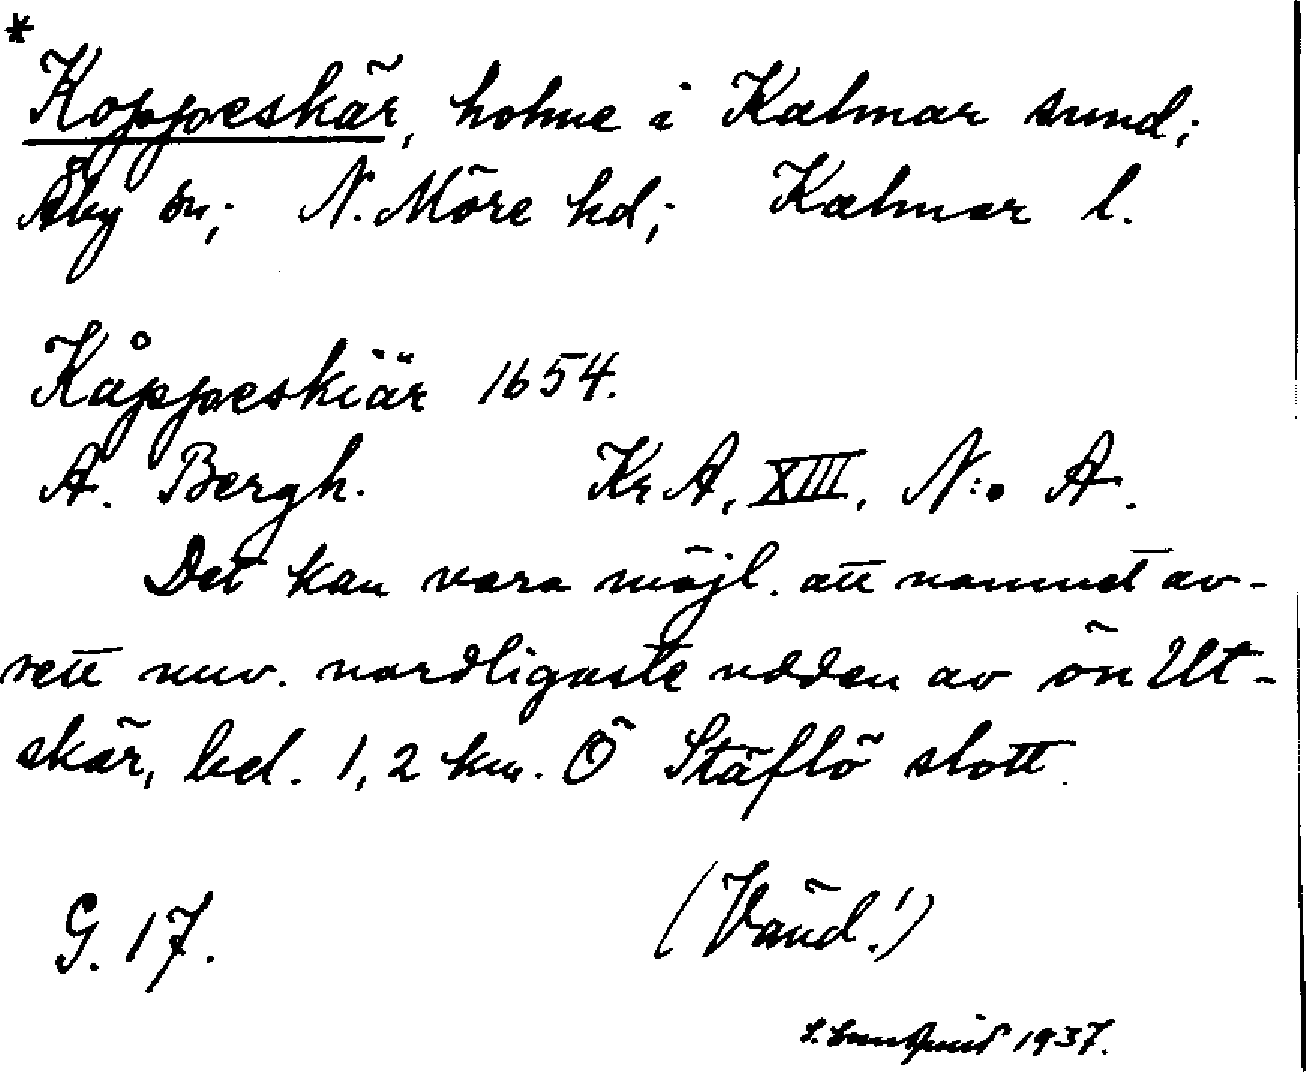 *
Koppeskär, holme i Kalmar sund;
Åby sn; N. Möre hd; Kalmar l.
Kåppeskiär 1654.
A. Bergh. KrA, XIII, N:o A.
Det kan vara möjl. att namnet av-
sett nuv. nordligaste udden av ön Ut-
skär, bel. 1,2 km. Ö Stäflö slott.
G. 17. (Vänd!)
1937.